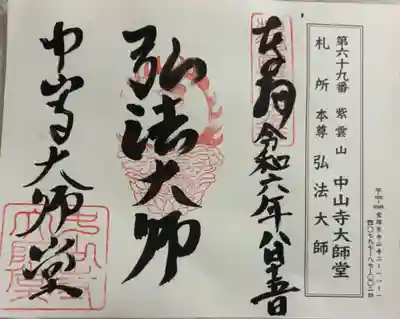 第六十九番 紫雲山 中山寺大師堂
札所 本尊 弘法大師
奉拝 令和六年八月十五日
弘法大師
中山寺大師堂